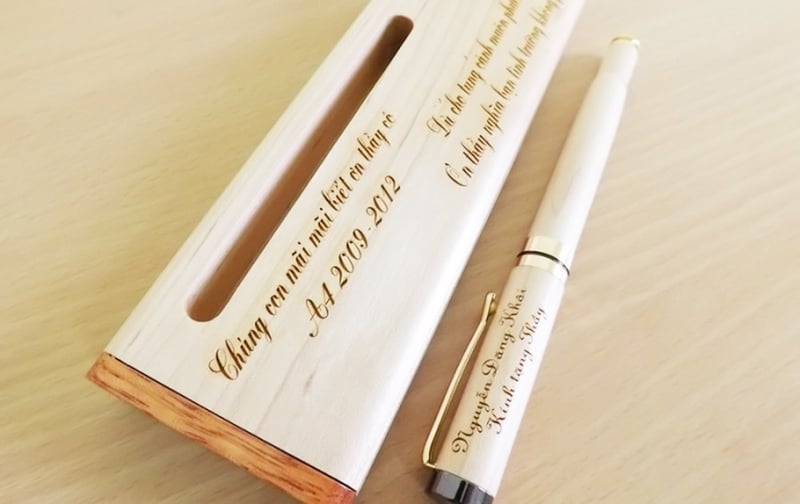 Chúng con mãi mãi biết ơn thầy cô
A4 2009 - 2012
Dù cho từng cánh muôn phư
Ơn thầy nghĩa bạn tình trường không
Nguyễn Đăng Khôi
Kính tặng Thầy